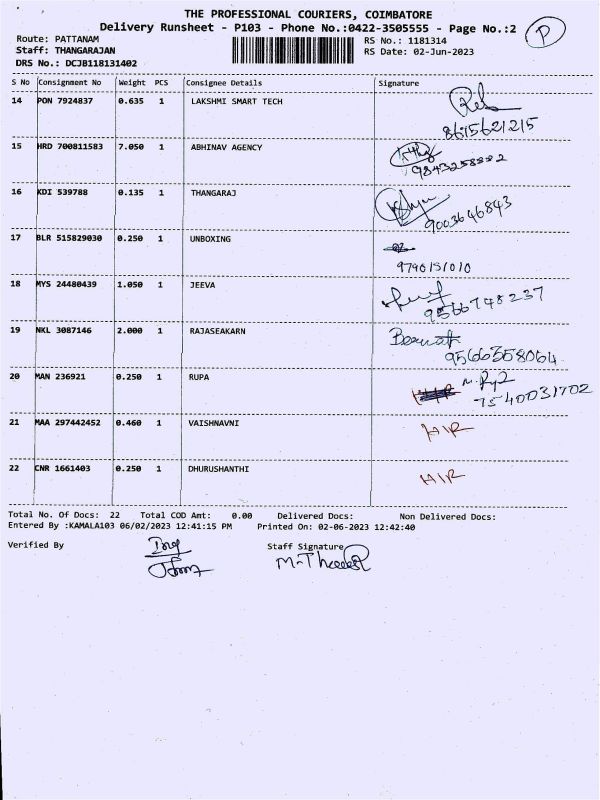 THE PROFESSIONAL COURIERS, COIMBATORE
Delivery Runsheet - P103 - Phone No.:0422-3505555 - Page No.:2
P
Route: PATTANAM
RS No.: 1181314
Staff: THANGARAJAN
RS Date: 02-Jun-2023
DRS No.: DCJB118131402
S No Consignment No Weight PCS Consignee Details Signature
14 PON 7924837 0.635 1 LAKSHMI SMART TECH
8615621215
15 HRD 700811583 7.050 1 ABHINAV AGENCY
9843258882
16 KDI 539788 0.135 1 THANGARAJ
9003646843
17 BLR 515829030 0.250 1 UNBOXING
9790151010
18 MYS 24480439 1.050 1 JEEVA
9566748237
19 NKL 3087146 2.000 1 RAJASEAKARN
9566358064
20 MAN 236921 0.250 1 RUPA
7540031702
21 MAA 297442452 0.460 1 VAISHNAVNI
H/R
22 CNR 1661403 0.250 1 DHURUSHANTHI
H/R
Total No. Of Docs: 22 Total COD Amt: 0.00 Delivered Docs: Non Delivered Docs:
Entered By :KAMALA103 06/02/2023 12:41:15 PM Printed On: 02-06-2023 12:42:40
Verified By Staff Signature